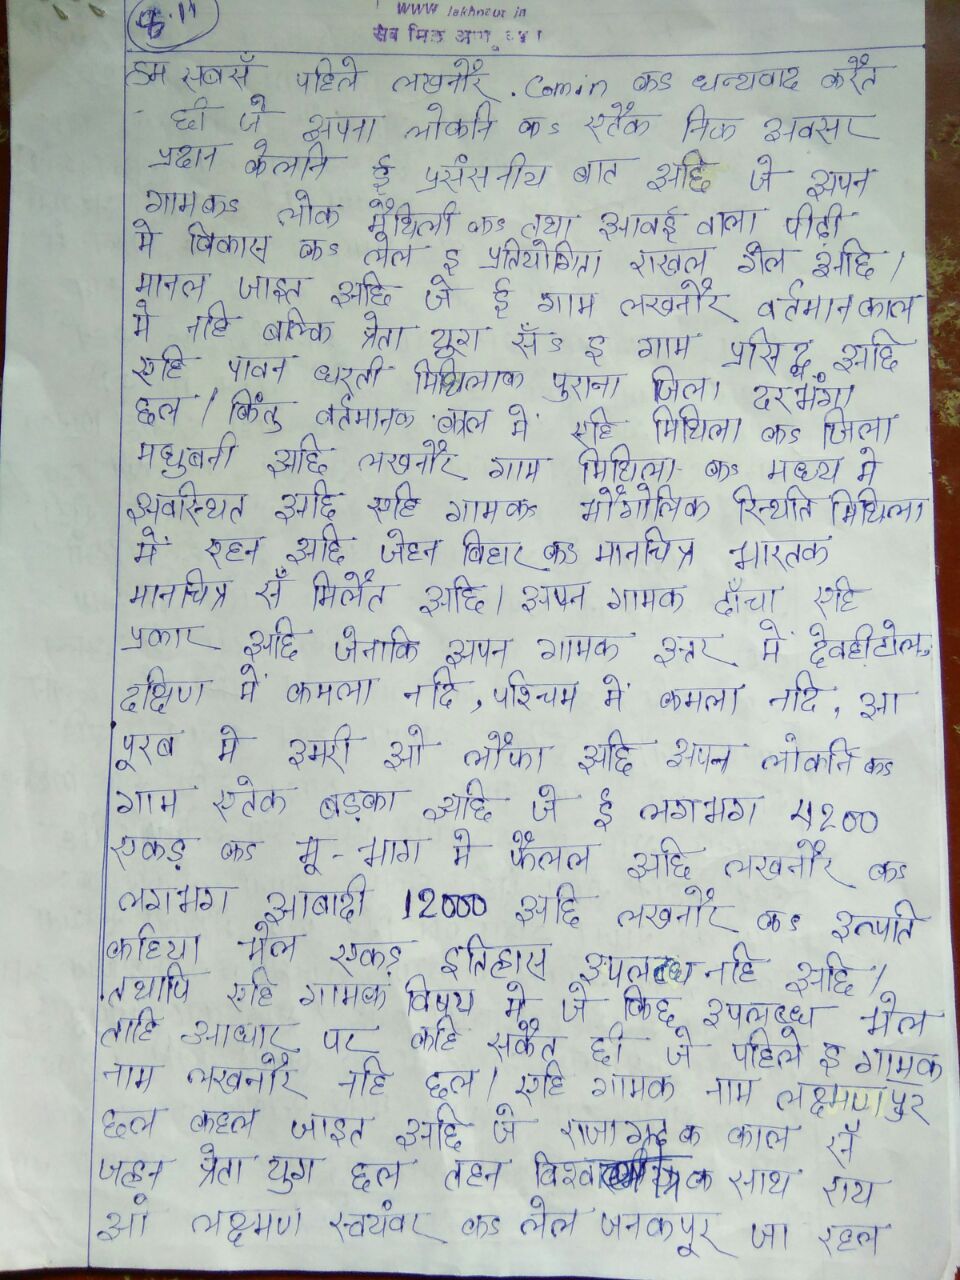 www lakhnaur in
हम सबसँ पहिले लखनौर . Comin कऽ धन्यवाद करैत
छी जे अपना लोकनि कऽ एतेक निक अवसर
प्रदान केलनि ई प्रसंसनीय बात अछि जे अपन
गामकऽ लोक मैथिली कऽ तथा आवई वाला पीढ़ी
मे विकास कऽ लेल इ प्रतियोगिता राखल गेल अछि।
मानल जाइत अछि जे ई गाम लखनौर वर्तमान काल
मे नहि बल्कि त्रेता युग सँऽ इ गाम प्रसिद्ध अछि
एहि पावन धरती मिथिलाक पुराना जिला दरभंगा
छल। किंतु वर्तमानक काल में एहि मिथिला कऽ जिला
मधुबनी अछि लखनौर गाम मिथिला कऽ मध्य मे
अवस्थित अछि एहि गामकऽ भौगोलिक स्थिति मिथिला
में एहन अछि जेहन बिहार कऽ मानचित्र भारतक
मानचित्र सँ मिलैत अछि। अपन गामक ढाँचा एहि
प्रकार अछि जेनाकि अपन गामक उत्तर में देवहीटोल,
दक्षिण में कमला नदि, पश्चिम में कमला नदि, आ
पूरब मे उमरी ओ लौफा अछि अपन लोकनि कऽ
गाम एतेक बड़का अछि जे ई लगभग 4200
एकड़ कऽ भू-भाग मे फैलल अछि लखनौर कऽ
लगभग आबादी 12000 अछि लखनौर कऽ उत्पति
कहिया भेल एकड़ इतिहास उपलब्ध नहि अछि।
तथापि एहि गामक विषय मे जे किछ उपलब्ध भेल
ताहि आधार पर कहि सकैत छी जे पहिले इ गामक
नाम लखनौर नहि छल। एहि गामक नाम लक्ष्मणपुर
छल कहल जाइत अछि जे राजा क काल सँ
जहन त्रेता युग छल तहन साथ राय
आं लक्ष्मण स्वयंवर कऽ लेल जनकपूर जा रहल